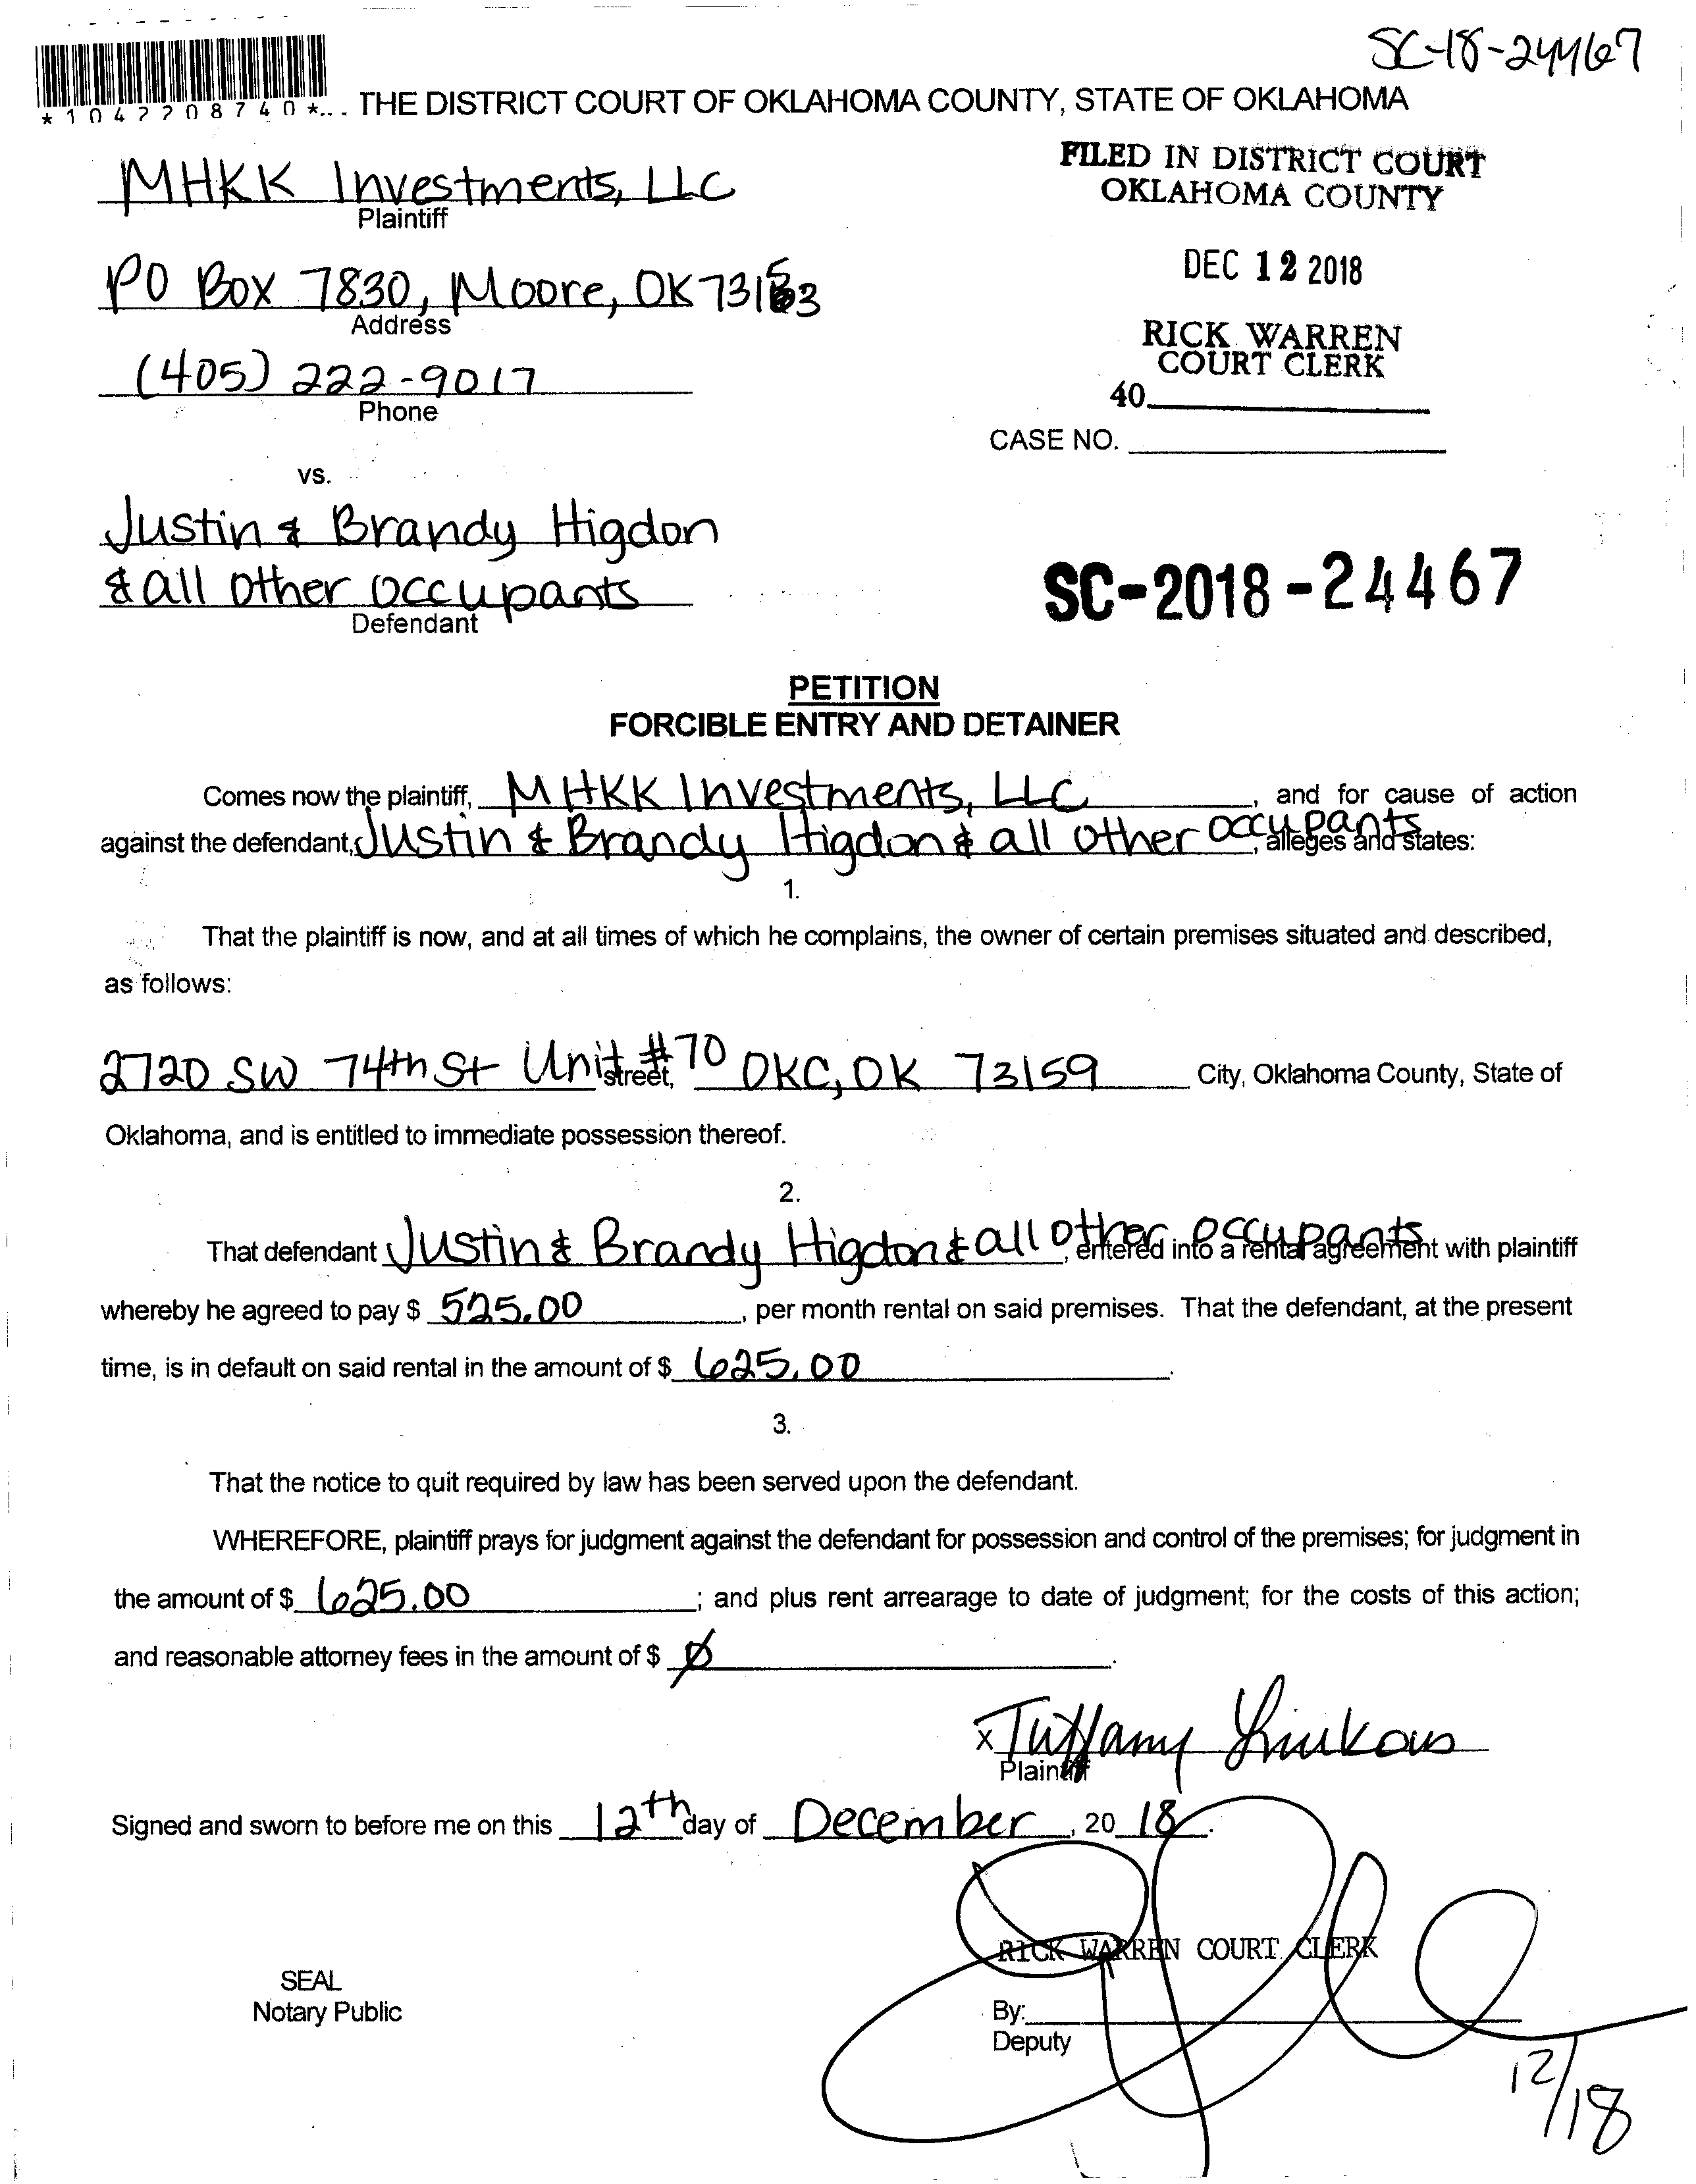 SC-18-24467
*1042208740*... THE DISTRICT COURT OF OKLAHOMA COUNTY, STATE OF OKLAHOMA
MHKK Investments, LLC
Plaintiff
FILED IN DISTRICT COURT
OKLAHOMA COUNTY
PO Box 7830, Moore, OK 73153
Address
DEC 12 2018
(405) 222-9017
Phone
RICK WARREN
COURT CLERK
40
CASE NO.
vs.
Justin & Brandy Higdon
& all other occupants
Defendant
SC-2018-24467
PETITION
FORCIBLE ENTRY AND DETAINER
Comes now the plaintiff, MHKK Investments, LLC, and for cause of action
against the defendant, Justin & Brandy Higdon & all other occupants, alleges and states:
1.
That the plaintiff is now, and at all times of which he complains, the owner of certain premises situated and described,
as follows:
2720 SW 74th St Unit #70 street, OKC, OK 73159 City, Oklahoma County, State of
Oklahoma, and is entitled to immediate possession thereof.
2.
That defendant Justin & Brandy Higdon & all other occupants, entered into a rental agreement with plaintiff
whereby he agreed to pay $ 525.00, per month rental on said premises. That the defendant, at the present
time, is in default on said rental in the amount of $ 625.00.
3.
That the notice to quit required by law has been served upon the defendant.
WHEREFORE, plaintiff prays for judgment against the defendant for possession and control of the premises; for judgment in
the amount of $ 625.00; and plus rent arrearage to date of judgment; for the costs of this action;
and reasonable attorney fees in the amount of $ Ø.
x Tiffany
Plaintiff
Signed and sworn to before me on this 12th day of December, 20 18.
RICK WARREN COURT CLERK
SEAL
Notary Public
By:
Deputy
12/18